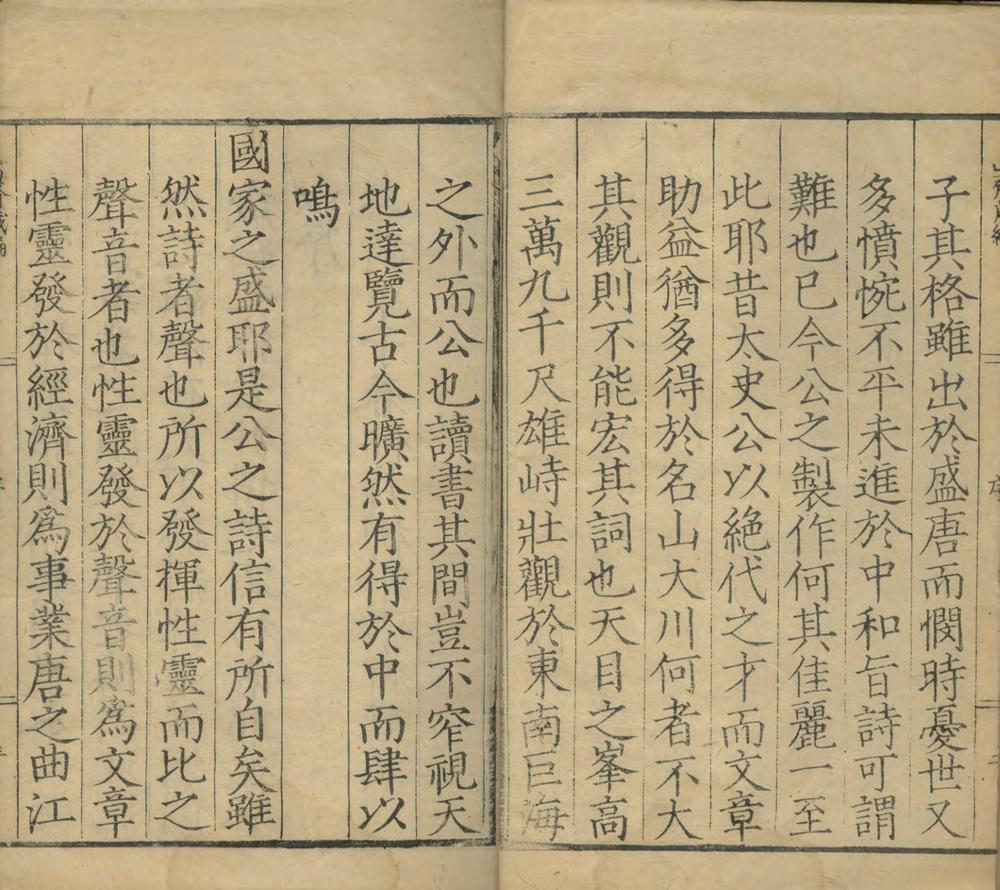 子其格雖出於盛唐而憫時憂世又
多憤惋不平未進於中和旨詩可謂
難也已今公之製作何其佳麗一至
此耶昔太史公以絕代之才而文章
助益猶多得於名山大川何者不大
其觀則不能宏其詞也天目之峯高
三萬九千尺雄峙壯觀於東南巨海
之外而公也讀書其間豈不窄視天
地達覽古今曠然有得於中而肆以
鳴
國家之盛耶是公之詩信有所自矣雖
然詩者聲也所以發揮性靈而比之
聲音者也性靈發於聲音則爲文章
性靈發於經濟則爲事業唐之曲江